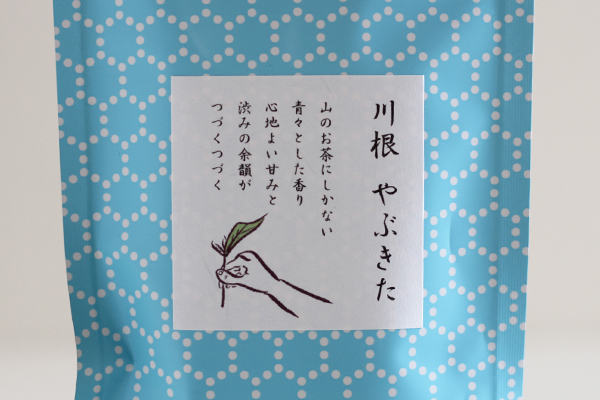 川根 やぶきた
山のお茶にしかない
青々とした香り
心地よい甘みと
渋みの余韻が
つづくつづく